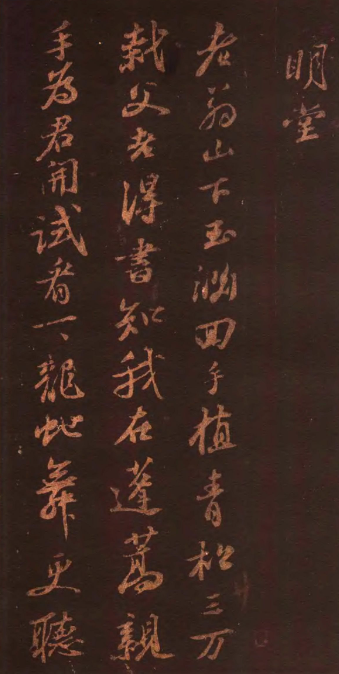 明堂
老翁山下玉淵回手植青松三万
栽父老得書知我在蓬蒿親
手為君開試看一〻龍虵舞更聽